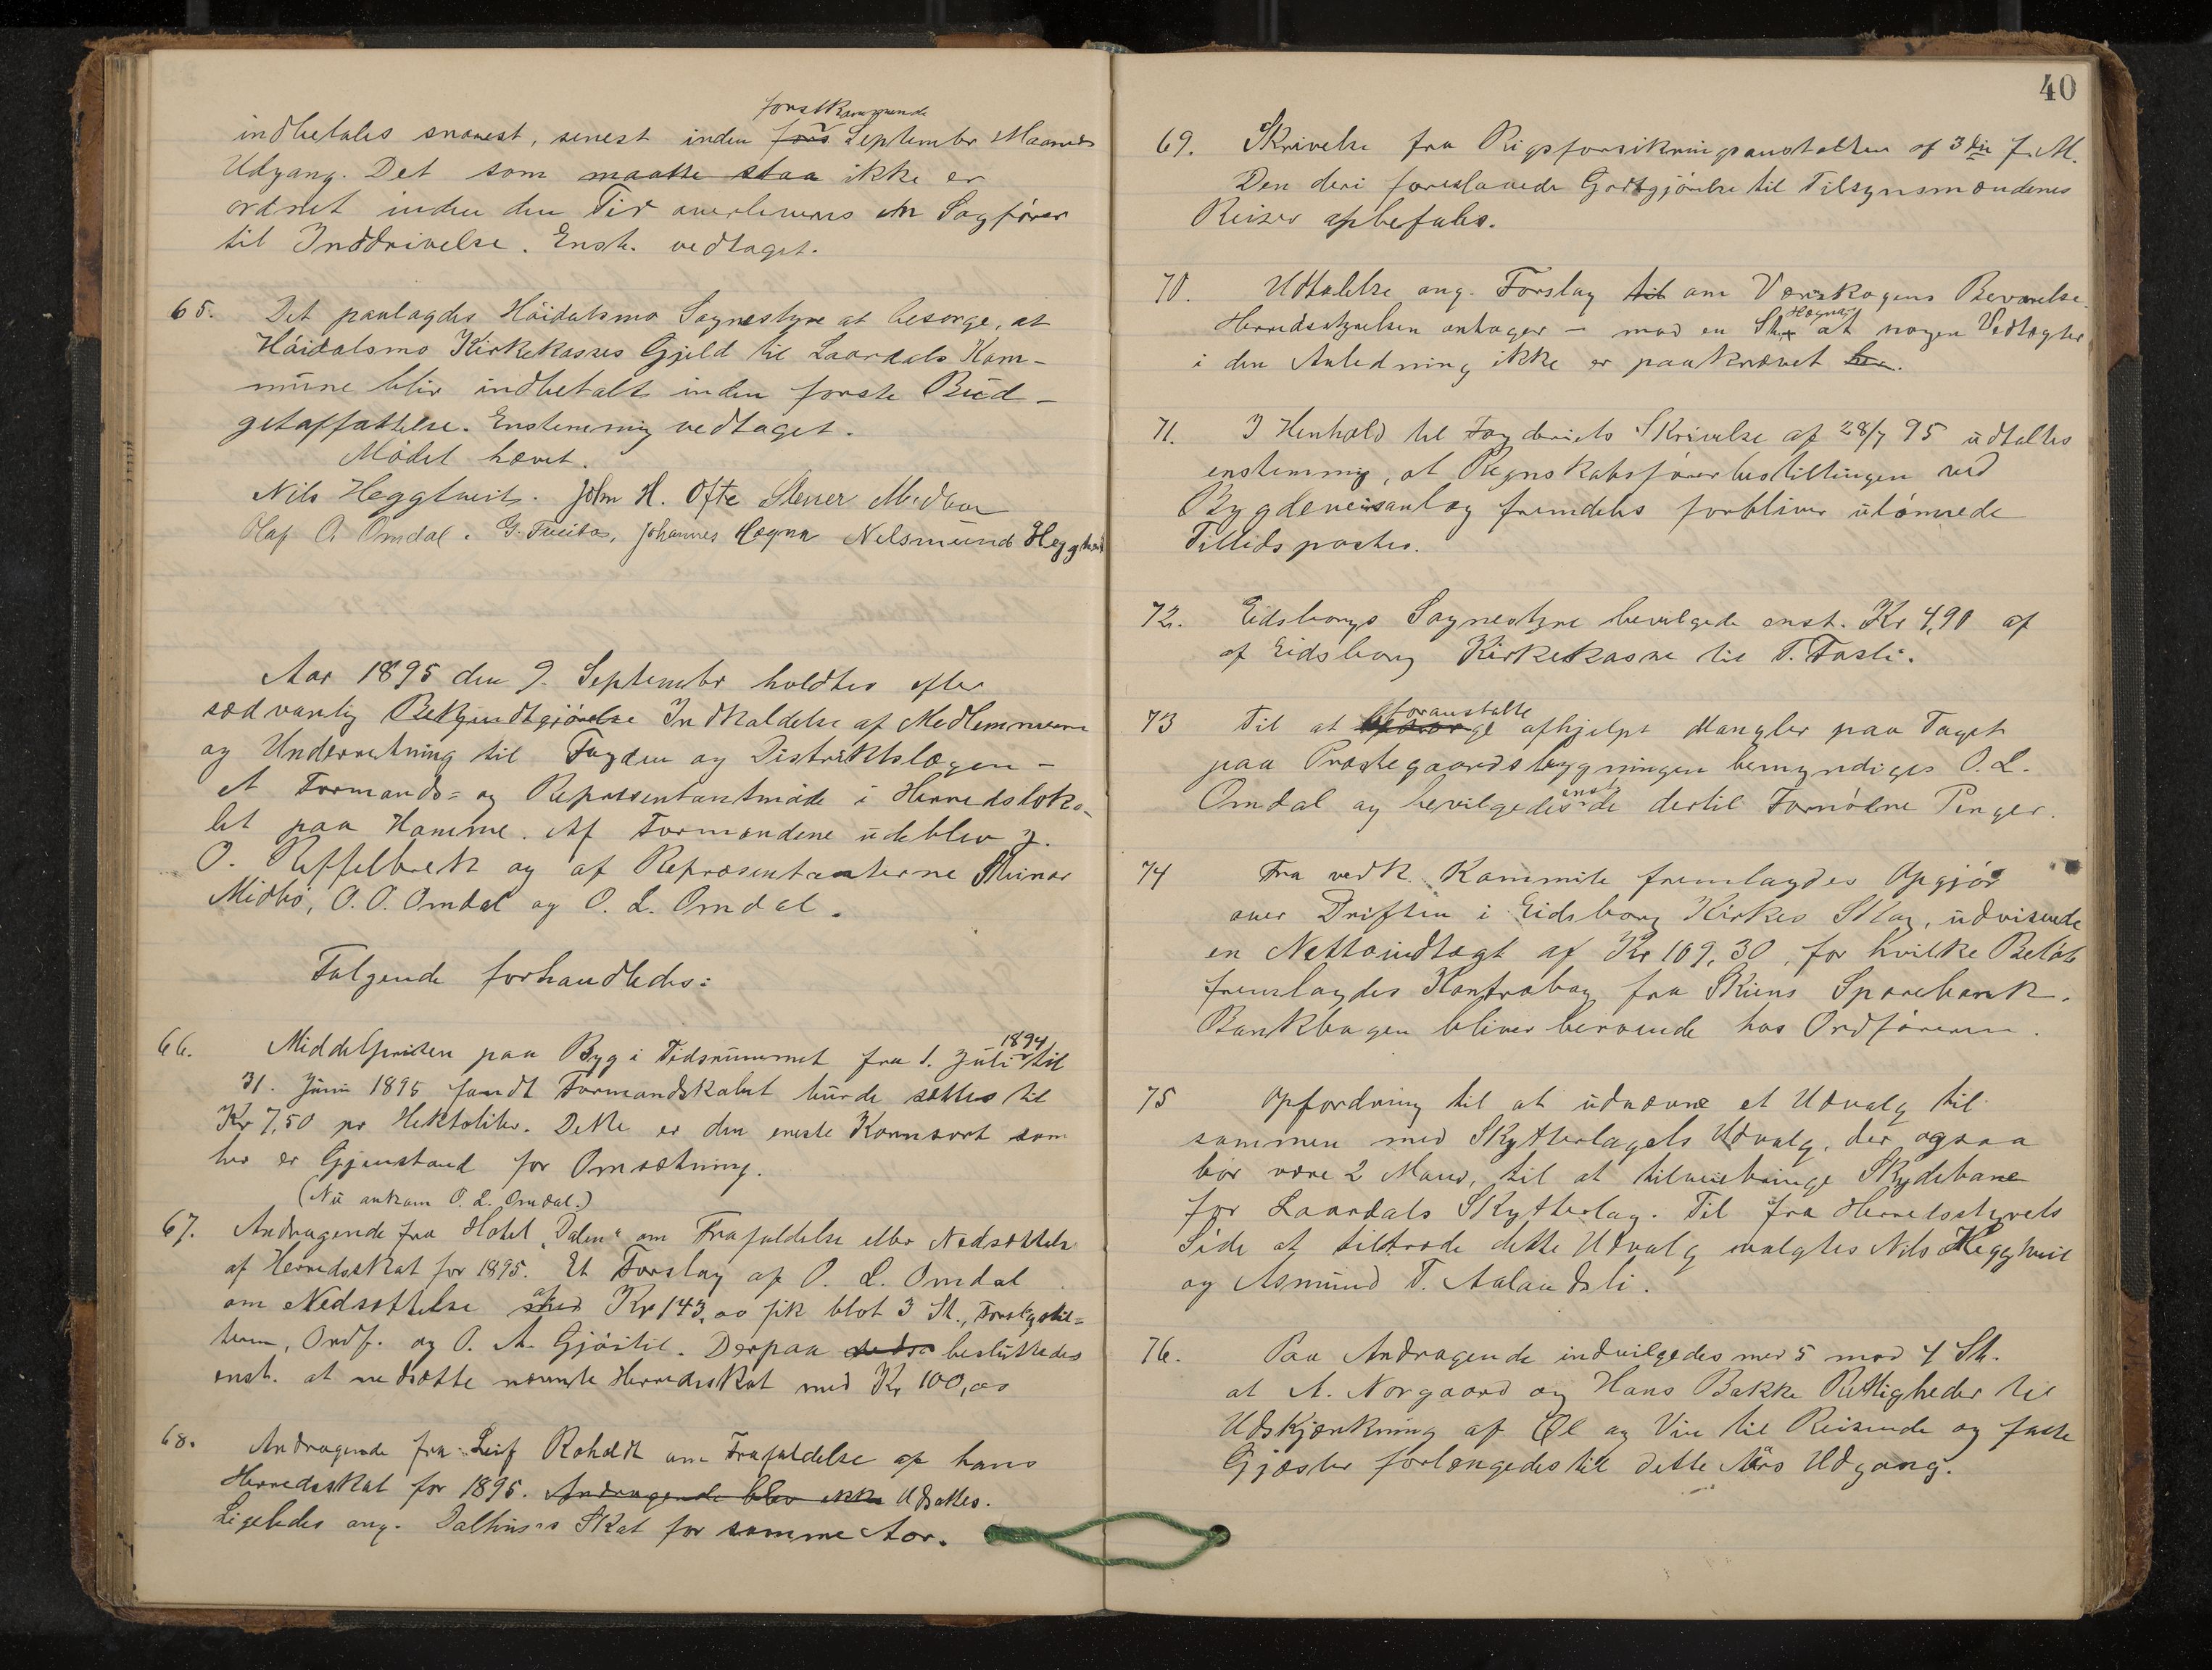 forstkommende
indbetales snarest, senest inden fors September Maaneds
Udgang. Det som maatte staa ikke er
ordnet inden den Tid overleveres en Sagfører
til Inddrivelse. Enst. vedtaget.
65. Det paalagdes Høidalsmo Sognestyre at besørge, at
Høidalsmo Kirkekasses Gjeld til Laardals Kom-
mune blir indbetalt inden første Bud-
getaffattelse. Enstemmig vedtaget.
Mødet hævet.
Nils Heggtveit. John H. Ofte Stener Midbøe
Olaf O. Omdal. G. Johannes Høgna Nelsmund Heggtveit
Aar 1895 den 9. September holdtes efter
sædvanlig Bekjendtgjørelse Indkaldelse af Medlemmerne
og Underretning til Fogden og Distriktslægen -
et Formands- og Repræsentantmøde i Herredsloka-
let paa Hamme. Af Formændene udeblev J.
O. Reffelbræk og af Repræsentanterne Steinar
Midbø, O. O. Omdal og O. L. Omdal.
Følgende forhandledes:
66. Middelprisen paa Byg i Tidsrummet fra 1. Juli 1894 til
31. Juni 1895 fandt Formandskabet burde sættes til
Kr 7,50 pr Hektoliter. Dette er den eneste Kornsort som
her er Gjenstand for Omsætning.
(Nu ankom O. L. Omdal.)
67. Andragende fra Hotel "Dalen" om Frafaldelse eller Nedsættelse
af Herredsskat for 1895. Et Forslag af O. L. Omdal
om Nedsættelse med af Kr 143,00 fik blot 3 St., Forslagstil-
leren, Ordf. og O. A. Gjøitil. Derpaa besluttedes
enst. at nedsætte nævnte Herredsskat med Kr 100,00
68. Andragende fra Leif Roholdt om Frafaldelse af hans
Herredsskat for 1895. Andragende blev ikke Udsattes.
Ligeledes ang. Dalhuses Skat for samme Aar.
40
69. Skrivelse fra Rigsforsikringsanstalten af 3die f. M.
Den deri foreslaaede Godtgjørelse til Tilsynsmændenes
Reiser anbefales.
70. Udtalelse ang. Forslag til om Værskogens Bevarelse.
Herredsstyrelsen antager - mod en St. Høgna at nogen Vedtægter
i den Anledning ikke er paakrævet her.
71. I Henhold til Fogderiets Skrivelse af 28/7 95 udtaltes
enstemmig, at Regnskabsførerbestillingen ved
Bygdeveisanlæg fremdeles forbliver ulønnede
Tillidsposter.
72. Eidsborgs Sognestyre bevilgede enst. Kr 4,90 af
af Eidsborg Kirkekasse til T. Fosli.
73 Til at besørge foranstalte afhjelpt Mangler paa Taget
paa Præstegaardsbygningen bemyndiges O. L.
Omdal og bevilgedes enst. de dertil Fornødne Penger.
74 Fra vedk. Kommite fremlagdes Opgjør
over Driften i Eidsborg Kirkes Skog, udvisende
en Nettoindtægt af Kr 109,30, for hvilke Beløb
fremlagdes Kontrabog fra Skiens Sparebank.
Bankbogen bliver beroende hos Ordføreren.
75 Opfordring til at udnævne et Udvalg til
sammen med Skytterlagets Udvalg, der ogsaa
bør være 2 Mand, til at tilveiebringe Skydebane
for Laardals Skytterlag. Til fra Herredsstyrets
Side at tiltræde dette Udvalg valgtes Nils Heggtveit
og Asmund T. Aalandsli.
76. Paa Andragende indvilgedes med 5 mod 4 St.
at A. Norgaard og Hans Bakke Rettigheder til
Udskjænkning af Øl og Vin til Reisende og faste
Gjæster forlængedes til dette Aars Udgang.